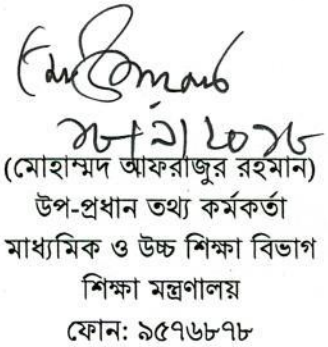 (মোহাম্মদ আফরাজুর রহমান)
উপ-প্রধান তথ্য কর্মকর্তা
মাধ্যমিক ও উচ্চ শিক্ষা বিভাগ
শিক্ষা মন্ত্রণালয়
ফোন: ৯৫৭৬৮৭৮